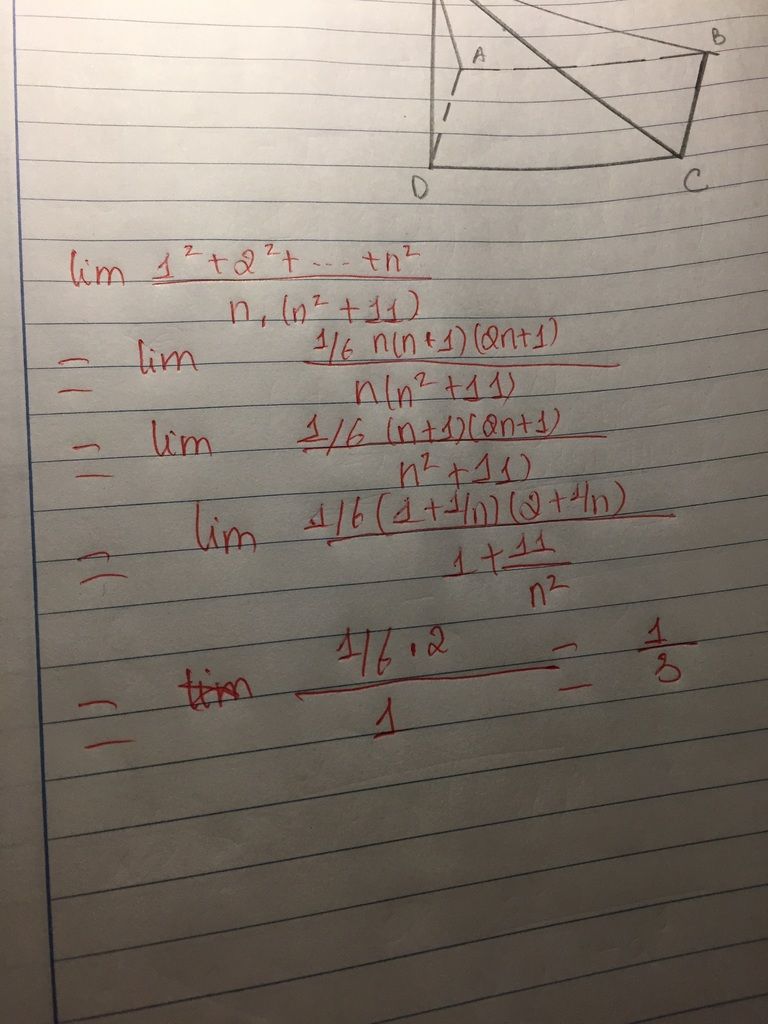 A B
D C
lim 1² + 2² + ... + n² / n.(n² + 11)
= lim 1/6 n(n+1)(2n+1) / n(n² + 11)
= lim 1/6 (n+1)(2n+1) / n² + 11)
= lim 1/6 (1 + 1/n)(2 + 1/n) / 1 + 11/n²
= lim 1/6 . 2 / 1 = 1/3